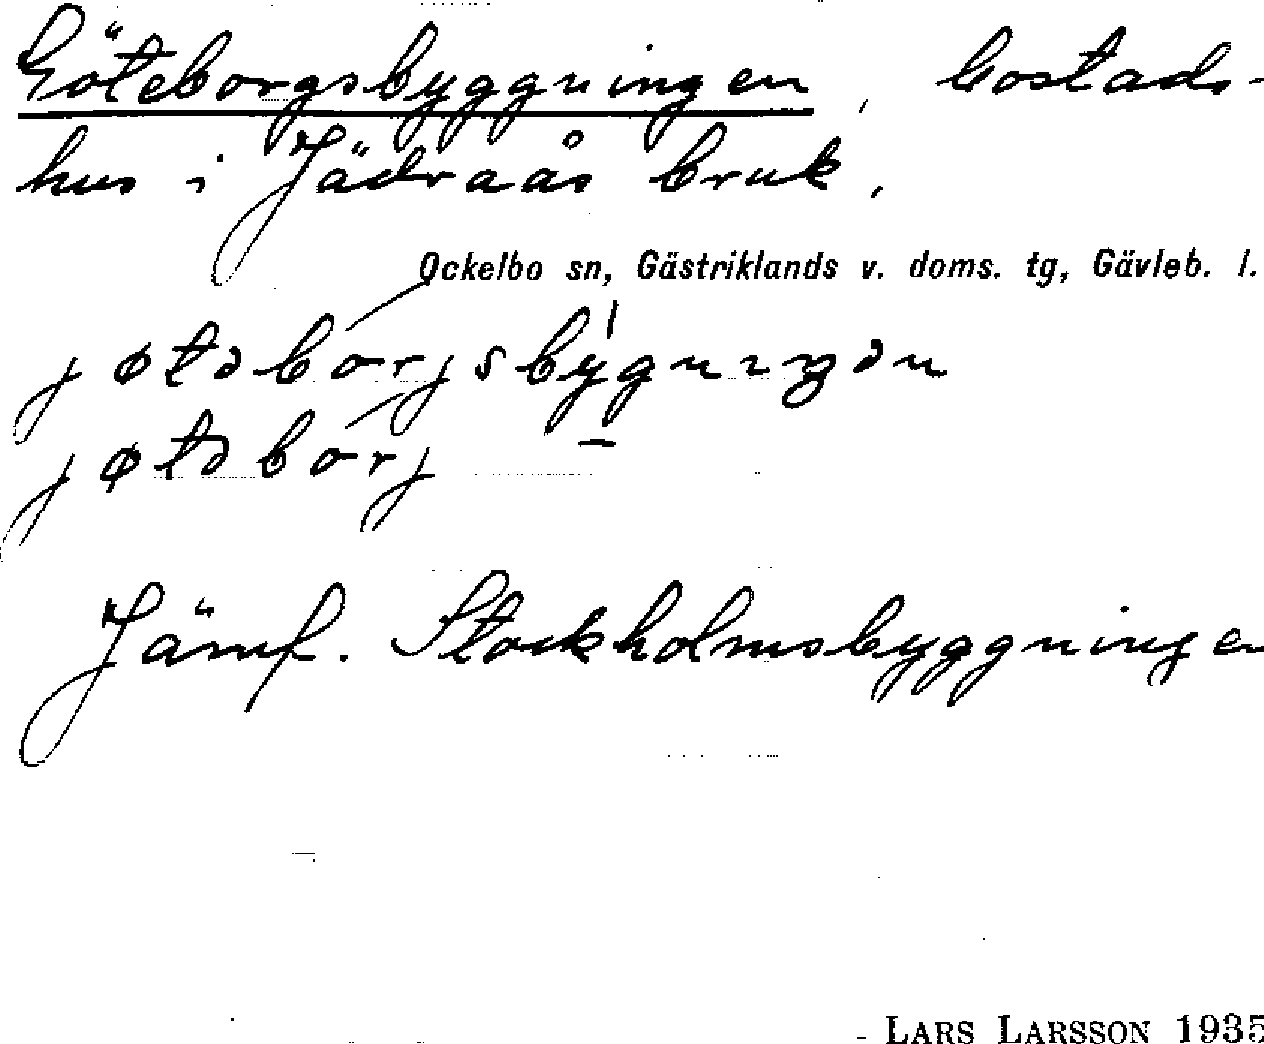 Göteborgsbyggningen, bostads-
hus i Jädraås bruk,
Ockelbo sn, Gästriklands v. doms. tg, Gävleb. l.
jøtəbórjsbýgnıŋən
jøtəbórj –
Jämf. Stockholmsbyggningen
- LARS LARSSON 1935